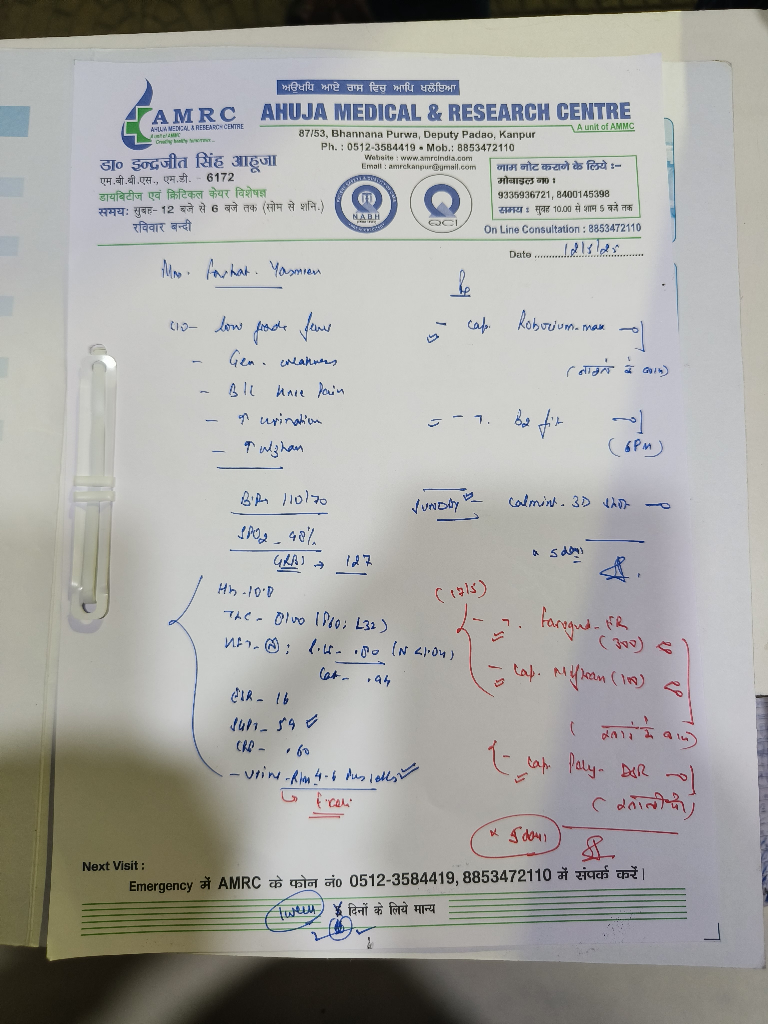 ਅਉਖਧਿ ਆਏ ਰਾਸ ਵਿਚ ਆਪਿ ਖਲੋਇਆ
AMRC
AHUJA MEDICAL & RESEARCH CENTRE
A unit of AMMC
Creating healthy tomorrows...
AHUJA MEDICAL & RESEARCH CENTRE
A unit of AMMC
87/53, Bhannana Purwa, Deputy Padao, Kanpur
Ph. : 0512-3584419 • Mob.: 8853472110
Website : www.amrcindia.com
Email : amrckanpur@gmail.com
डा० इन्द्रजीत सिंह आहूजा
एम.बी.बी.एस., एम.डी. - 6172
डायबिटीज एवं क्रिटिकल केयर विशेषज्ञ
समय: सुबह- 12 बजे से 6 बजे तक (सोम से शनि.)
रविवार बन्दी
NABH
QCI
नाम नोट कराने के लिये :-
मोबाइल न० :
9335936721, 8400145398
समय : सुबह 10.00 से शाम 5 बजे तक
On Line Consultation : 8853472110
Date 12/5/25
Mrs. Farhat Yasmeen
C/O - low grade fever
- Gen. weakness
- B/L Knee Pain
- ↑ urination
B.P. 110/70
SPO2 - 98%
GRBS → 127
Hb - 10.8
TLC - 8100 (P60; L32)
ESR - 16
SGPT - 59
CRP - .60
- Urine - R/M 4-6 Pus cells
↳ E. coli
Rx
- Cap.
(नाश्ते के बाद)
- T.
(6PM)
SUNDAY -
× 5 days
(17/5)
- T. Faropenem - ER (300)
- Cap. (100)
- Cap. DSR
× 5 days
Next Visit :
Emergency में AMRC के फोन नं० 0512-3584419, 8853472110 में संपर्क करें।
1 week
दिनों के लिये मान्य